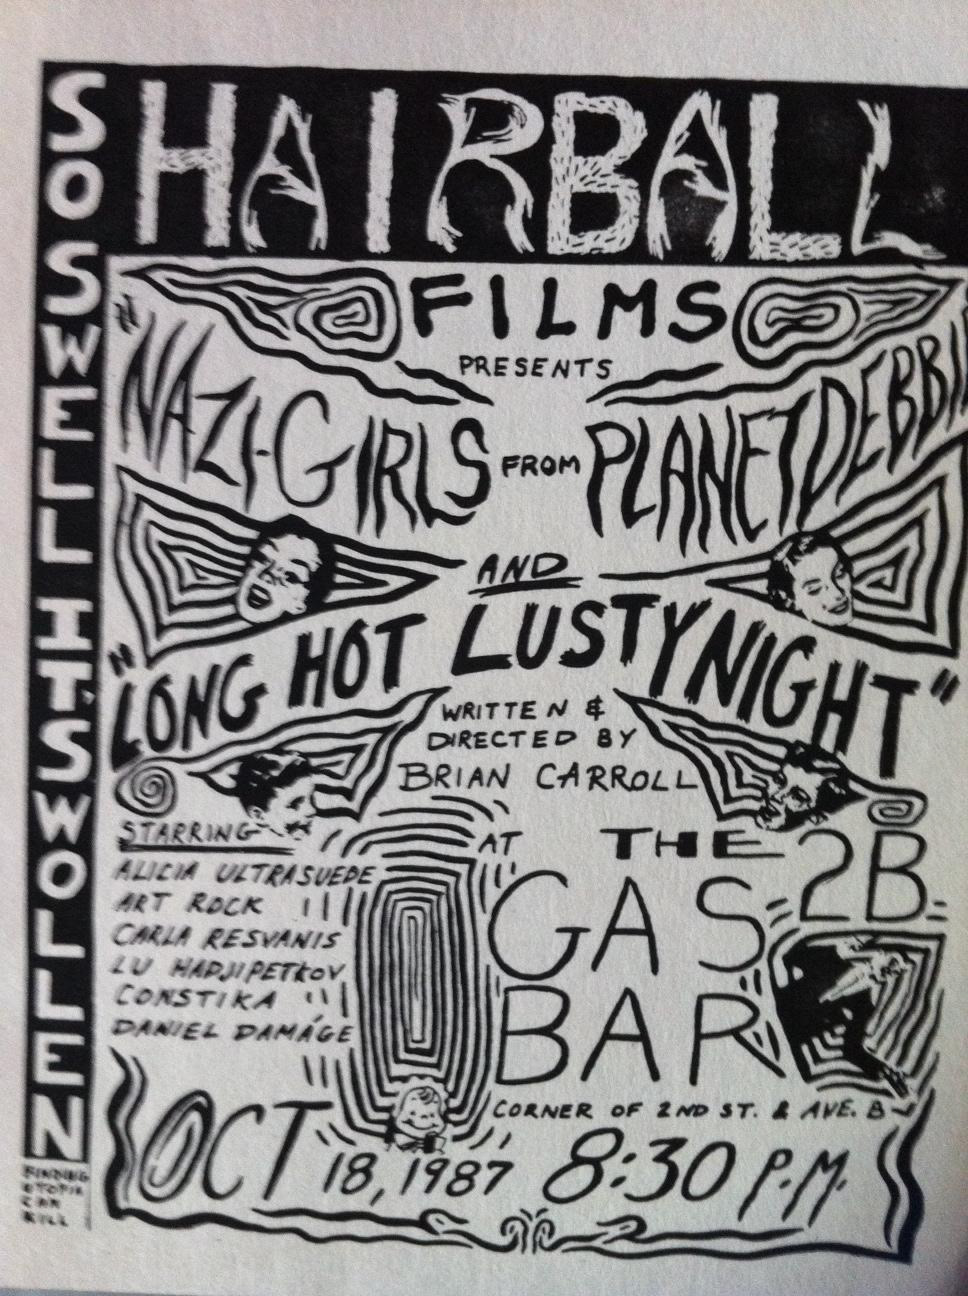 SO SWELL IT'S WOLLEN
FINDING
UTOPIA
CAN
KILL
HAIRBALL
FILMS
PRESENTS
"NAZI-GIRLS FROM PLANET DEBBI
AND
"LONG HOT LUSTY NIGHT"
WRITTEN &
DIRECTED BY
BRIAN CARROLL
STARRING
ALICIA ULTRASUEDE
ART ROCK
CARLA RESVANIS
LU HADJIPETKOV
CONSTIKA
DANIEL DAMÁGE
AT THE 2B
GAS
BAR
CORNER OF 2ND ST. & AVE. B
OCT 18, 1987 8:30 P.M.